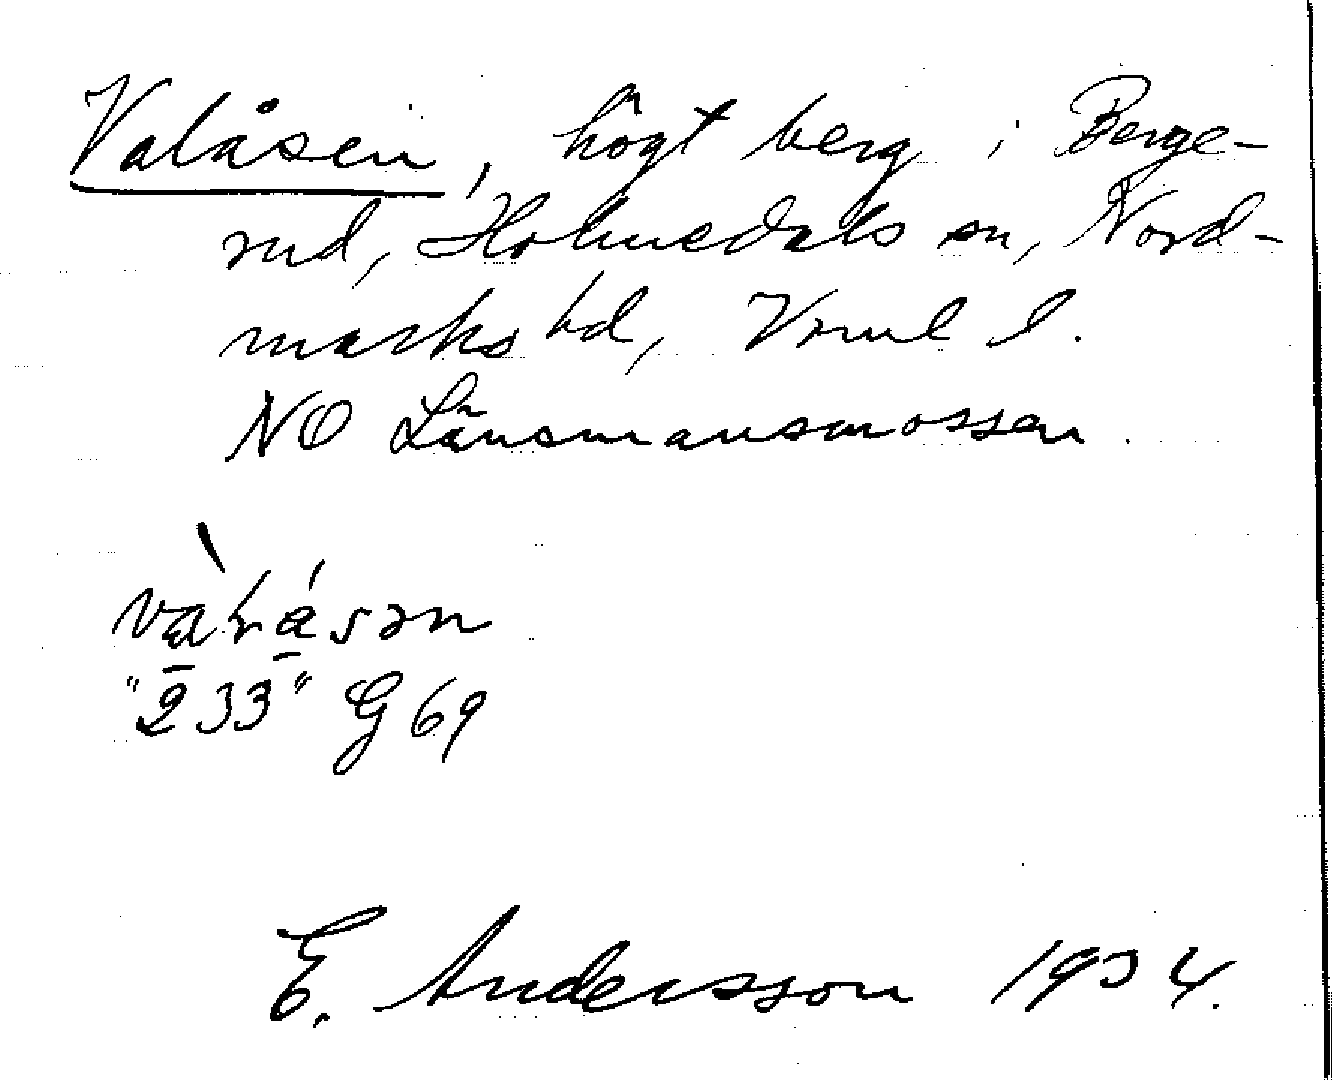 Valåsen, högt berg i Berge-
rud, Holmedals sn, Nord-
marks hd, Vrml l.
NO Länsmansmossen.
"233" G 69
E. Andersson 1934.